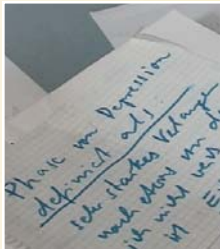 Phase von Depression
definiert als
sehr starkes Verlangen
nach etwas von d
ich will